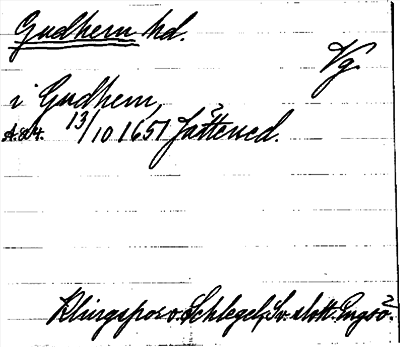 Gudhem hd.
Vg.
i Gudhem,
A.dv. 13/10 1651 Jättened.
Klingspor o. Schlegel, Sv. slott. Engsö.